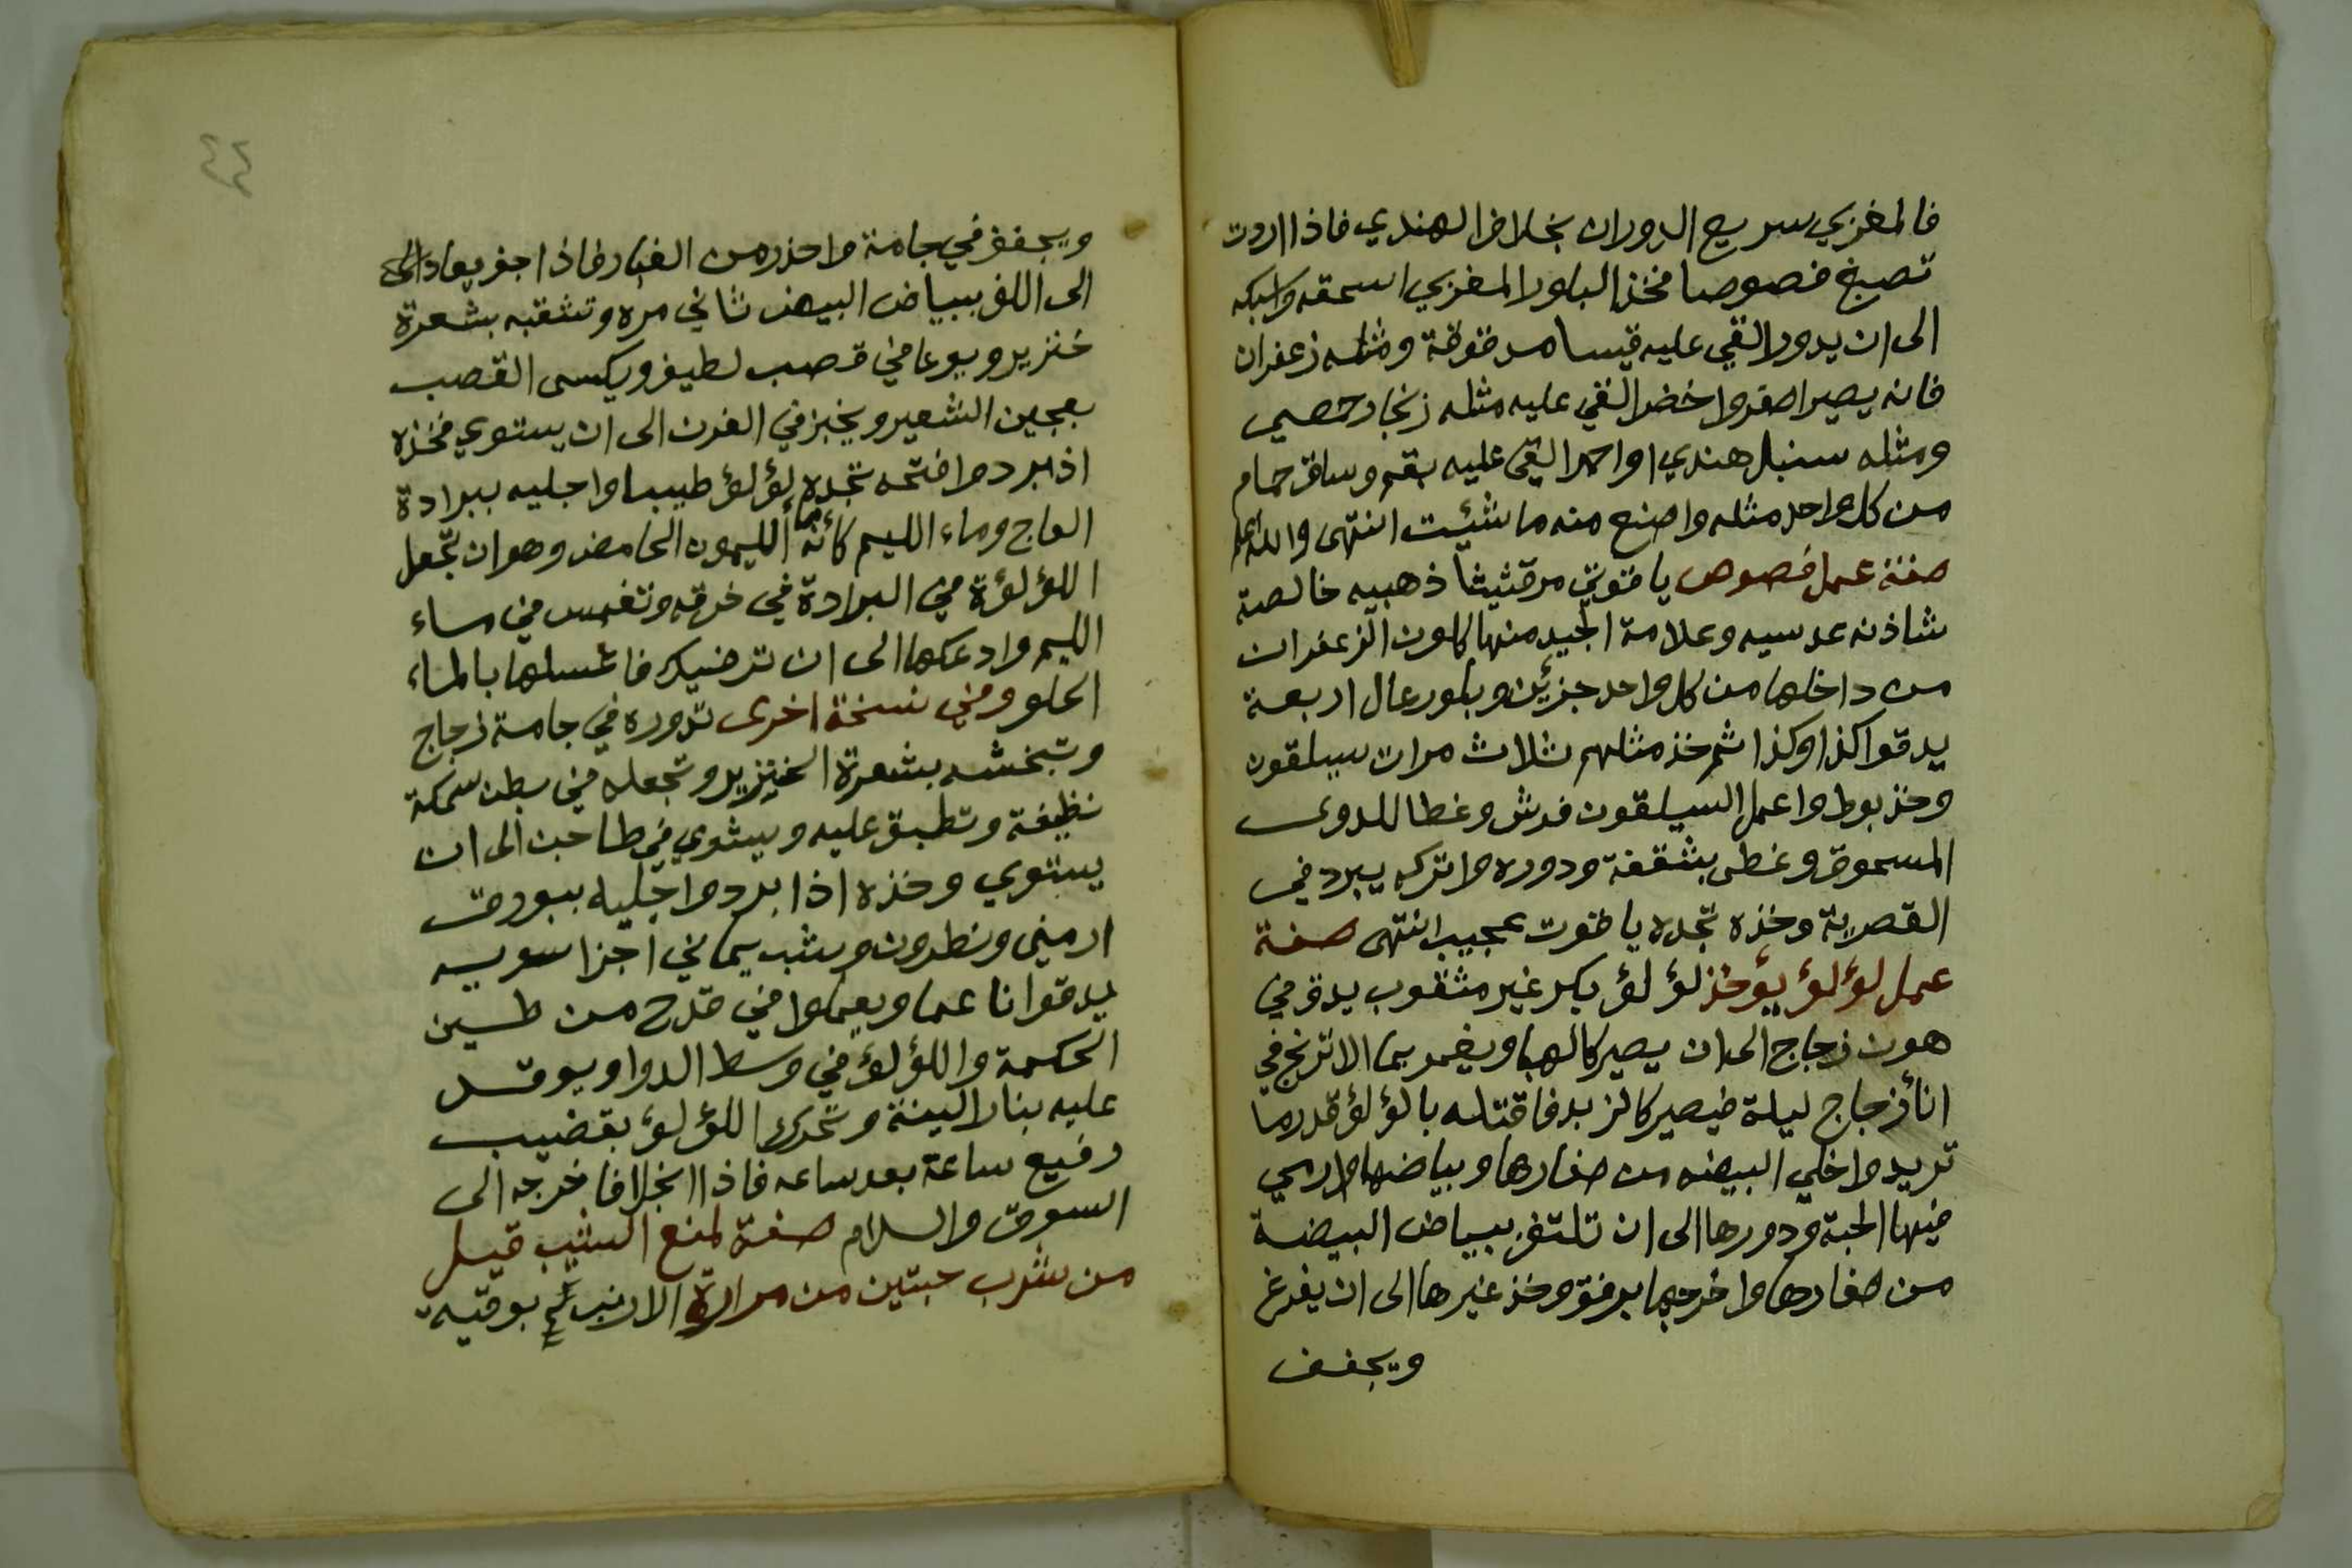 فالمغربي سريع الدوران بخلاف الهندي فاذا اردت
تصبغ فصوصا فخذ البلور المغربي اسحقه واسبكه
الى ان يدور القي عليه قيسا مدقوقة ومثله زعفران
فانه يصير اصفر واخضر القي عليه مثله زنجار حمصي
ومثله سنبل هندي او احمر القي عليه بقم وساق حمام
من كل واحد مثله واصنع منه ما شئيت انتهى والله اعلم
صفة عمل فصوص ياقوتي مرقثيثا ذهبيه خالصة
شاذنه عدسيه وعلامة الجيد منها كلون الزعفران
من داخلها من كل واحد جزئين وبلور عال اربعة
يدقوا كذا وكذا ثم خذ مثلهم ثلاث مرات سيلقون
وخذ بوط واعمل السيلقون فرش وغطا للدوى
المسحوق وغطى بشقفة ودوره واتركه يبرد في
القصرية وخذه تجده ياقوت عجيب انتهى صفة
عمل لؤلؤ يؤخذ لؤلؤ بكر غير مثقوب يدق في
هون زجاج الى ان يصير كالهبا ويغمر بما الاترنج في
انأ زجاج ليلة فيصير كالزبد فاقتله بالؤلؤ قدر ما
تريد واخلي البيضه من صفارها وبياضها وارمي
فيها الحبة ودورها الى ان تلتف ببياض البيضة
من صفارها واخرجها برفق وخذ غيرها الى ان يفرغ
ويجفف
٤٤
ويجفف في جامة واحذر من الغبار فاذا جف يعاد الى
الى اللف ببياض البيض ثاني مره وتثقبه بشعرة
خنزير ويوعا في قصب لطيف ويكسى القصب
بعجين الشعير ويخبز في الفرن الى ان يستوي فخذه
اذ ابرد وافتحه تجده لؤلؤ طيبا واجليه ببرادة
العاج وماء الليم كأنه ما الليمون الحامض وهو ان تجعل
اللؤلؤة في البرادة في خرقه وتغمس في ماء
الليم وادعكها الى ان ترضيك فاغسلها بالماء
الحلو وفي نسخة اخرى تدوره في جامة زجاج
وتبخشه بشعرة الخنزير وتجعله في بطن سمكة
نظيفة وتطبق عليه ويشوي في طاجن الى ان
يستوي وخذه اذا برد واجليه ببورق
ارميني ونطرون وشب يماني اجزا سويه
يدقوا ناعما ويعملوا في قدح من طين
الحكمة واللؤلؤ في وسط الدوا ويوقد
عليه بنار لينة وتحرك اللؤلؤ بقضيب
رفيع ساعة بعد ساعه فاذا انجلا فاخرجه الى
السوق والسلام صفة لمنع الشيب قيل
من شرب حبتين من مرارة الارنب بوقيه